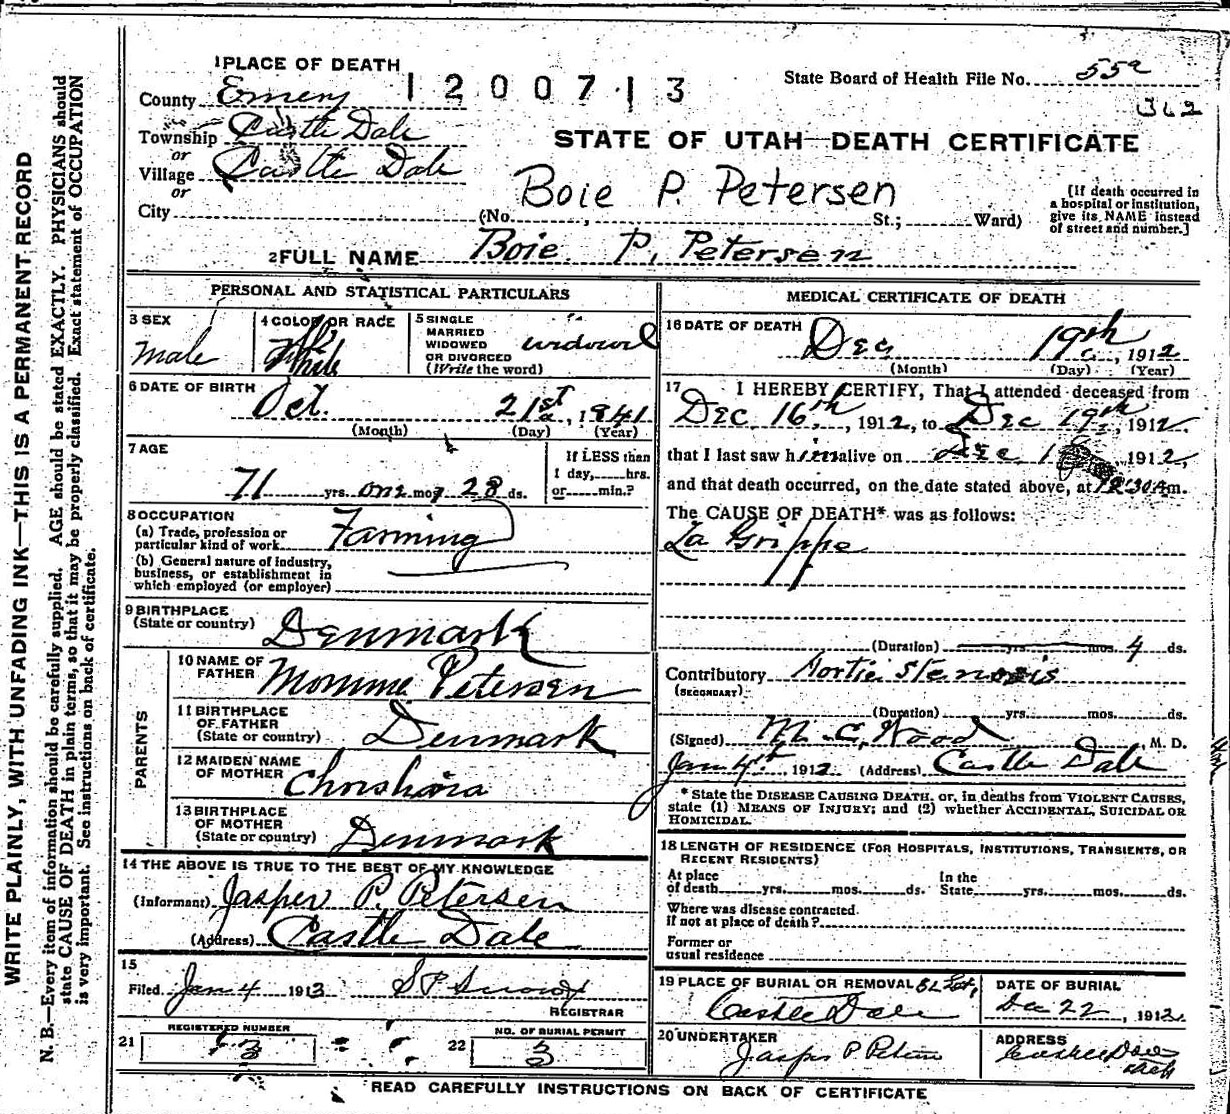 WRITE PLAINLY, WITH UNFADING INK—THIS IS A PERMANENT RECORD
N. B.—Every item of information should be carefully supplied. AGE should be stated EXACTLY. PHYSICIANS should
state CAUSE OF DEATH in plain terms, so that it may be properly classified. Exact statement of OCCUPATION
is very important. See instructions on back of certificate.
1 PLACE OF DEATH
1200713
State Board of Health File No. 55a
362
County Emery
Township Castle Dale
or
Village Castle Dale
or
City
STATE OF UTAH—DEATH CERTIFICATE
Boie P. Petersen
(No. , St.; Ward)
[If death occurred in
a hospital or institution,
give its NAME instead
of street and number.]
2 FULL NAME Boie P. Petersen
PERSONAL AND STATISTICAL PARTICULARS
3 SEX
Male
4 COLOR OR RACE
White
5 SINGLE
MARRIED
WIDOWED
OR DIVORCED
(Write the word)
widowed
6 DATE OF BIRTH
Oct. 21st, 1841
(Month) (Day) (Year)
7 AGE
71 yrs. one mos 28 ds.
If LESS than
1 day, hrs.
or min.?
8 OCCUPATION
(a) Trade, profession or
particular kind of work Farming
(b) General nature of industry,
business, or establishment in
which employed (or employer)
9 BIRTHPLACE
(State or country) Denmark
PARENTS
10 NAME OF
FATHER Momme Petersen
11 BIRTHPLACE
OF FATHER
(State or country) Denmark
12 MAIDEN NAME
OF MOTHER Christiana
13 BIRTHPLACE
OF MOTHER
(State or country) Denmark
14 THE ABOVE IS TRUE TO THE BEST OF MY KNOWLEDGE
(Informant) Jasper P. Petersen
(Address) Castle Dale
15
Filed Jan 4 1913
REGISTRAR
REGISTERED NUMBER
21
NO. OF BURIAL PERMIT
22 3
MEDICAL CERTIFICATE OF DEATH
16 DATE OF DEATH
Dec 19th, 1912
(Month) (Day) (Year)
17 I HEREBY CERTIFY, That I attended deceased from
Dec. 16th, 1912, to Dec 19th, 1912.
that I last saw him alive on Dec 1912,
and that death occurred, on the date stated above, at 12:30 Am.
The CAUSE OF DEATH* was as follows:
La Grippe
(Duration) yrs. mos. 4 ds.
Contributory Aortic Stenosis
(SECONDARY)
(Duration) yrs. mos. ds.
(Signed) M. C. Wood, M. D.
Jan 4th 1912 (Address) Castle Dale
* State the DISEASE CAUSING DEATH, or, in deaths from VIOLENT CAUSES,
state (1) MEANS OF INJURY; and (2) whether ACCIDENTAL, SUICIDAL OR
HOMICIDAL.
18 LENGTH OF RESIDENCE (FOR HOSPITALS, INSTITUTIONS, TRANSIENTS, OR
RECENT RESIDENTS)
At place
of death yrs. mos. ds.
In the
State yrs. mos. ds.
Where was disease contracted.
if not at place of death?
Former or
usual residence
19 PLACE OF BURIAL OR REMOVAL
Castle Dale
DATE OF BURIAL
Dec 22, 1912.
20 UNDERTAKER
Jasper P Petersen
ADDRESS
Castle Dale
Utah
READ CAREFULLY INSTRUCTIONS ON BACK OF CERTIFICATE